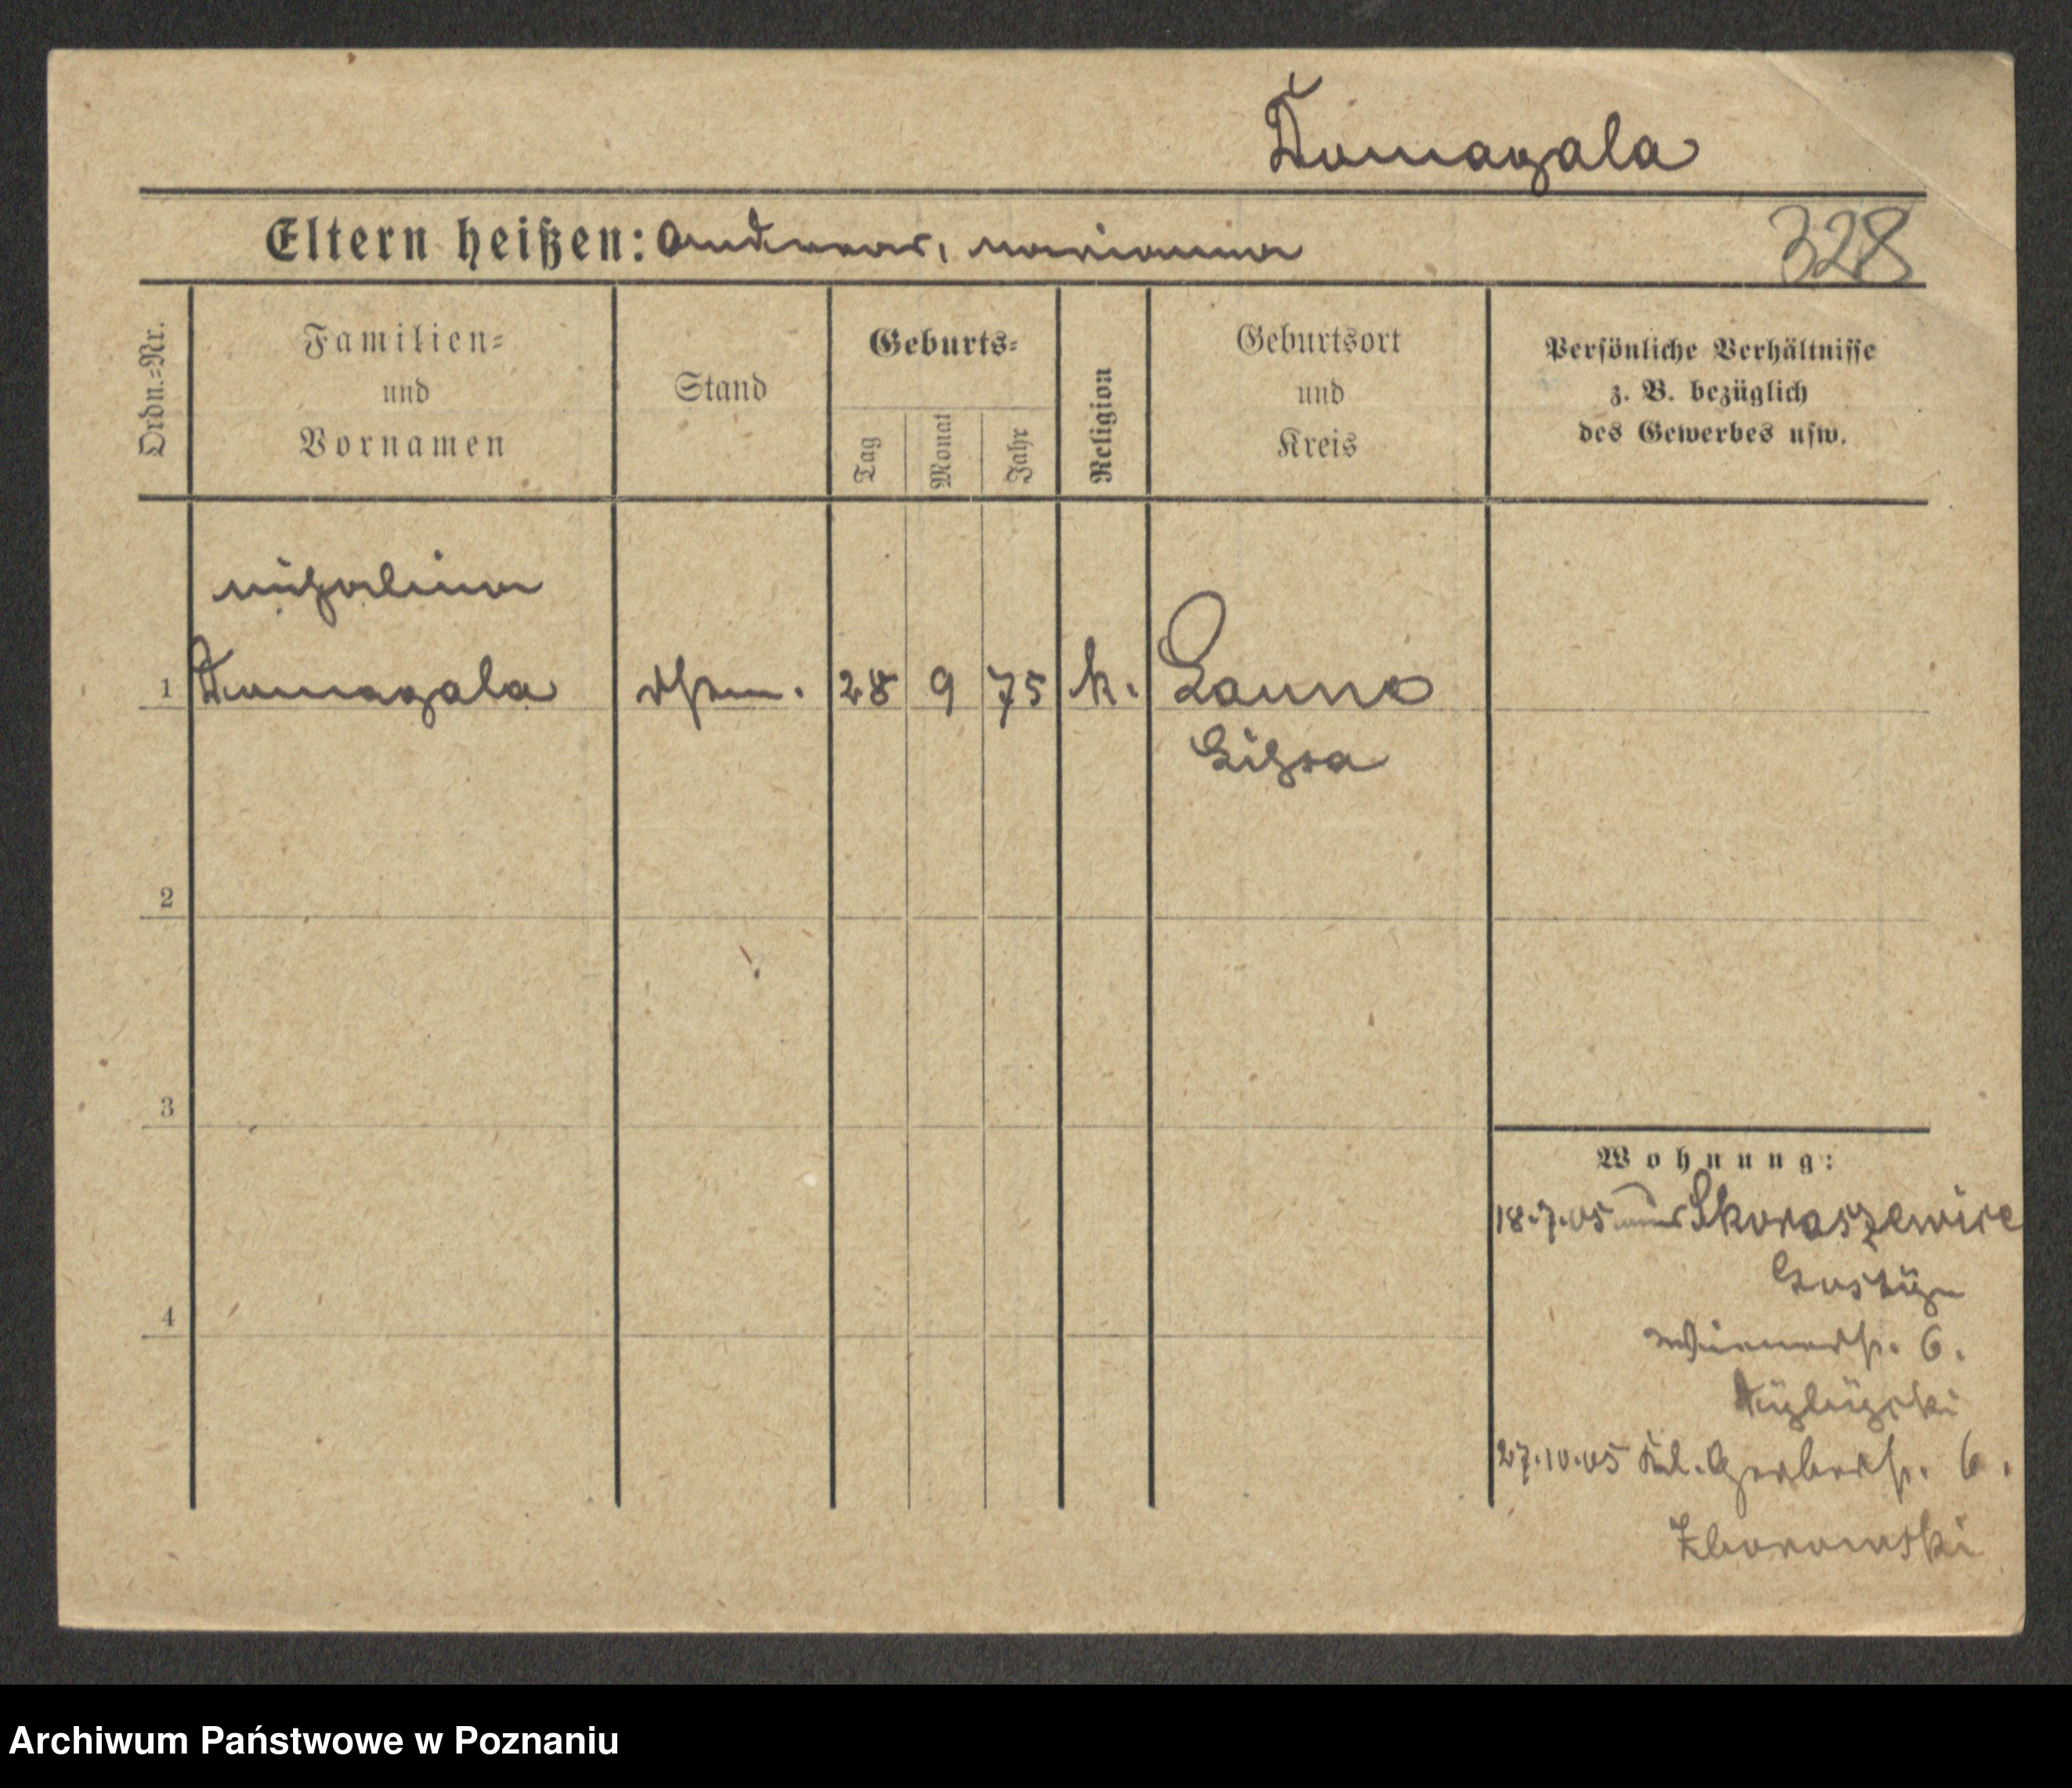 Domagala
Eltern heißen: Andreas, Marianna
328
Ordn.=Nr.
Familien=
und
Vornamen
Stand
Geburts=
Tag
Monat
Jahr
Religion
Geburtsort
und
Kreis
Persönliche Verhältnisse
z. B. bezüglich
des Gewerbes usw.
Michalina
1 Domagala 28 9 75 k.
2
3
4
Wohnung:
18.7.05 Skoraszewice
Gostÿn
Wienerstr. 6.
27.10.05 Kl. Gerberstr. 6.
Zborowski
Archiwum Państwowe w Poznaniu